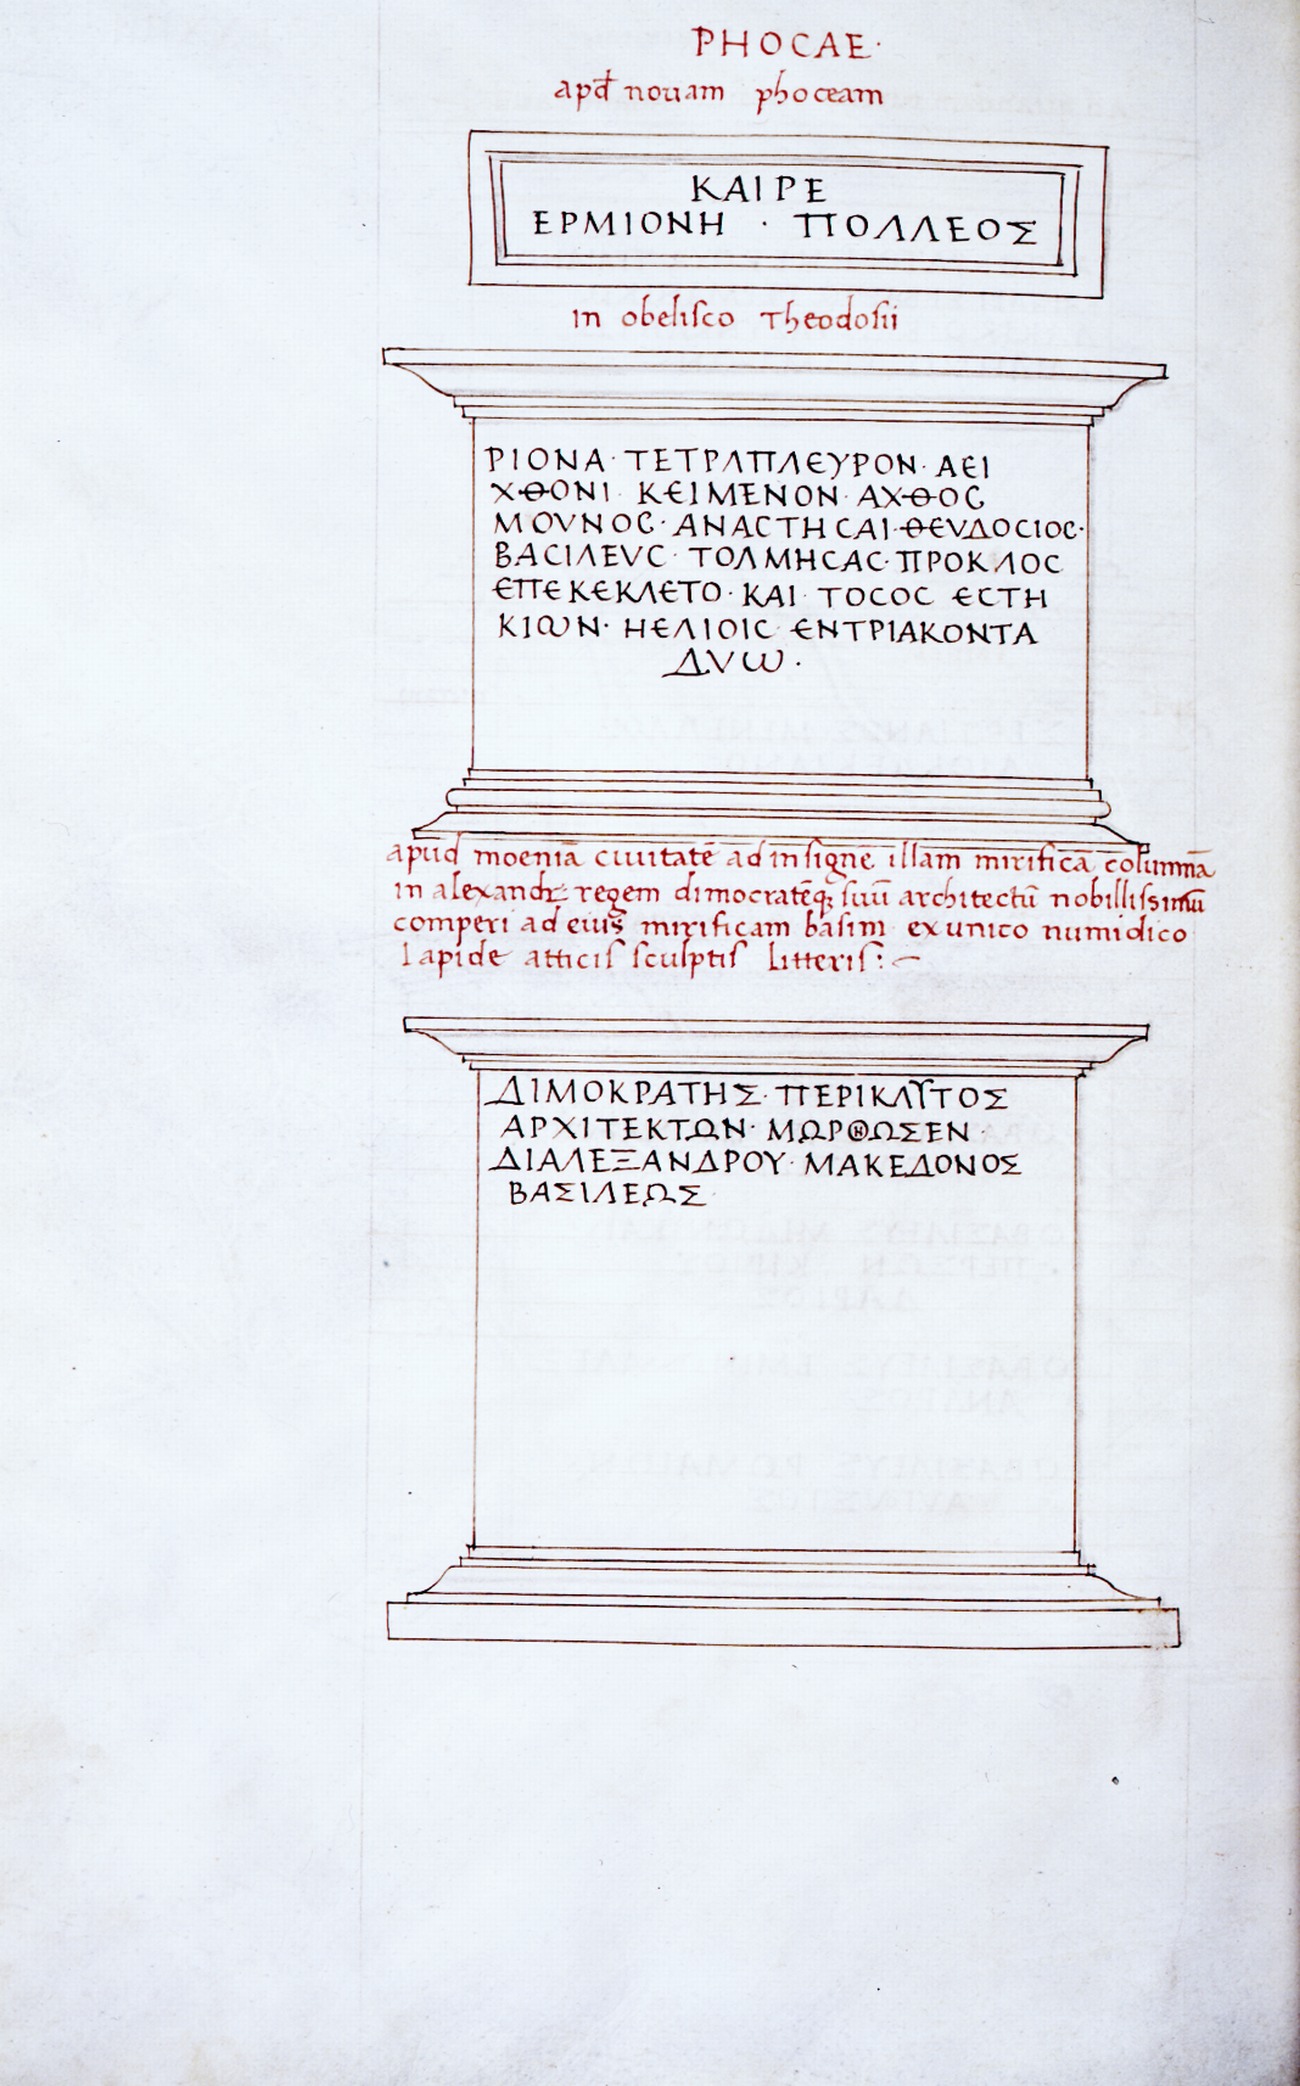 PHOCAE·
apđ nouam phoceam
ΚΑΙΡΕ
ΕΡΜΙΟΝΗ · ΠΟΛΛΕΟΣ
in obelisco Theodosii
ΡΙΟΝΑ· ΤΕΤΡΑΠΛЄΥΡΟΝ· ΑЄΙ
ΧΘΟΝΙ· ΚЄΙΜΕΝΟΝ· ΑΧΘΟϹ
ΜΟVΝΟϹ· ΑΝΑϹΤΗϹΑΙ·ΘЄVΔΟϹΙΟϹ·
ΒΑϹΙΛΕVϹ· ΤΟΛΜΗϹΑϹ· ΠΡΟΚΛΟϹ
ЄΠЄΚЄΚΛЄΤΟ· ΚΑΙ· ΤΟϹΟϹ ЄϹΤΗ
ΚΙωΝ· ΗЄΛΙΟΙϹ ЄΝΤΡΙΑΚΟΝΤΑ
ΔVω·
apud moeniā ciuitatē ad insignē illam mirificā columnā
in alexandr regem dimocratēq; suū architectū nobillissimū
comperi ad eius mirificam basim ex unico numidico
lapide atticis sculptis litteris:—
ΔΙΜΟΚΡΑΤΗΣ· ΠΕΡΙΚΛΥΤΟΣ
ΑΡΧΙΤΕΚΤΩΝ· ΜΩΡΘΩΣΕΝ·
ΔΙΑΛΕΞΑΝΔΡΟΥ· ΜΑΚΕΔΟΝΟΣ
ΒΑΣΙΛΕΩΣ·